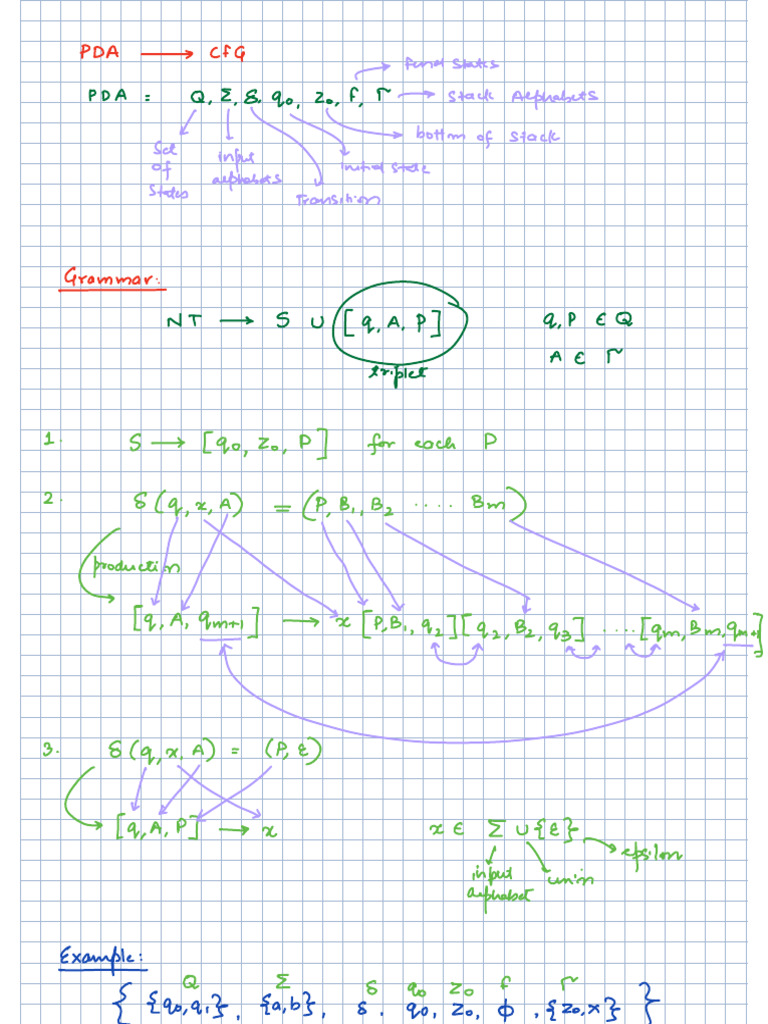 PDA → CFG
final states
PDA = Q, Σ, δ, q₀, z₀, f, Γ → Stack Alphabets
bottom of stack
Set of States
input alphabets
initial state
Transition
Grammar:
NT → S ∪ [q, A, P] q, P ∈ Q
triplet A ∈ Γ
1. S → [q₀, z₀, P] for each P
2. δ(q, x, A) = (P, B₁, B₂ .... Bm)
production
[q, A, qm+1] → x [P, B₁, q₂][q₂, B₂, q₃] .....[qm, Bm, qm+1]
3. δ(q, x, A) = (P, ε)
[q, A, P] → x x ∈ Σ ∪ {ε}
epsilon
input alphabet union
Example:
Q Σ δ q₀ z₀ f Γ
{ {q₀, q₁}, {a, b}, δ, q₀, z₀, ϕ, {z₀, x} }